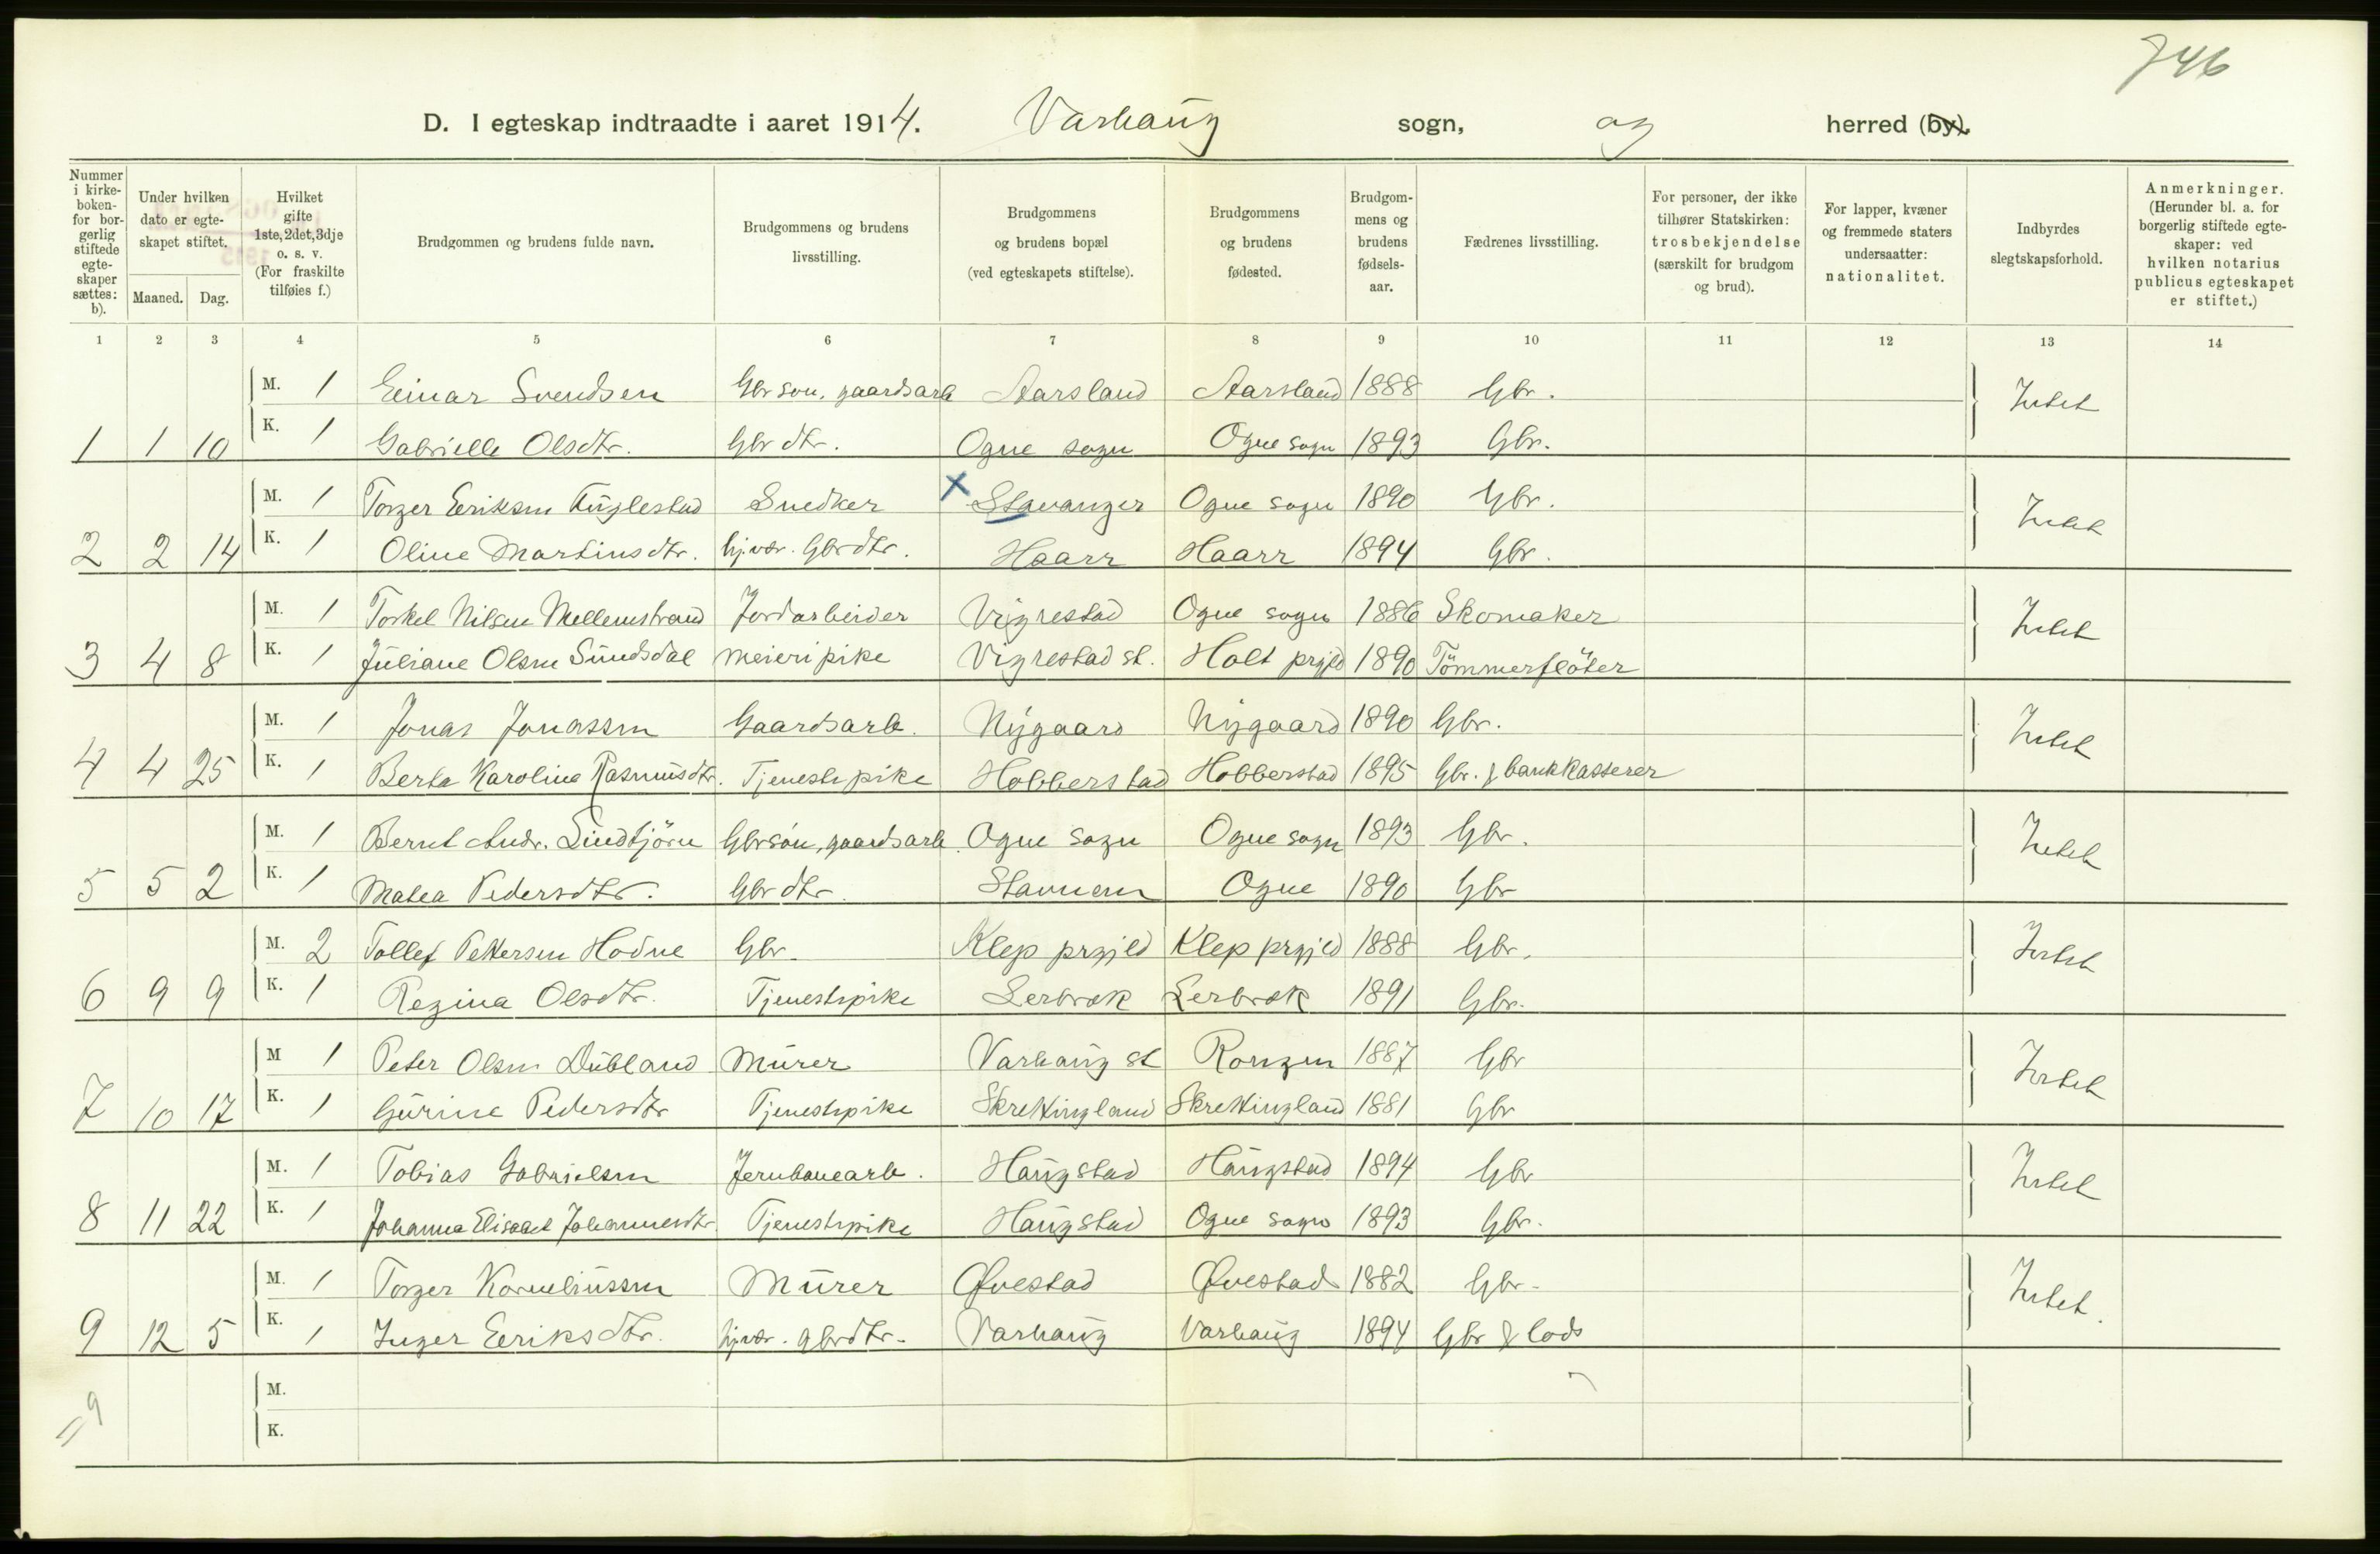 746
D. I egteskap indtraadte i aaret 1914. Varhaug sogn, og herred (by).
Nummer i kirke-boken- for bor-gerlig stiftede egte-skaper sættes: b).
Under hvilken dato er egte-skapet stiftet.
Maaned. Dag.
Hvilket gifte 1ste, 2det, 3dje o. s. v. (For fraskilte tilføies f.)
Brudgommen og brudens fulde navn.
Brudgommens og brudens livsstilling.
Brudgommens og brudens bopæl (ved egteskapets stiftelse).
Brudgommens og brudens fødested.
Brudgom-mens og brudens fødsels-aar.
Fædrenes livsstilling.
For personer, der ikke tilhører Statskirken: trosbekjendelse (særskilt for brudgom og brud).
For lapper, kvæner og fremmede staters undersaatter: nationalitet.
Indbyrdes slegtskapsforhold.
Anmerkninger. (Herunder bl. a. for borgerlig stiftede egte-skaper: ved hvilken notarius publicus egteskapet er stiftet.)
1 2 3 4 5 6 7 8 9 10 11 12 13 14
M. 1 Einar Svendsen Gbrsøn, gaardsarb Aarsland Aarsland 1888 Gbr. Intet
1 1 10 K. 1 Gabrielle Olsdtr. Gbrdtr. Ogne sogn Ogne sogn 1893 Gbr.
M. 1 Torger Eeriksen Kuglestad Snedker X Stavanger Ogne sogn 1890 Gbr. Intet
2 2 14 K. 1 Oline Martinsdtr. hj.vær. Gbrdtr. Haarr Haarr 1894 Gbr.
M. 1 Torkel Nilsen Mellemstrand Jordarbeider Vigrestad Ogne sogn 1886 Skomaker Intet
3 4 8 K. 1 Juliane Olsen Sundsdal meieripike Vigrestad st. Holt prgjld 1890 Tömmerflöter
M. 1 Jonas Jonassen Gaardsarb. Nygaard Nygaard 1890 Gbr. Intet
4 4 25 K. 1 Berta Karoline Rasmusdtr. Tjenestepike Hobberstad Hobberstad 1895 Gbr. & bankkasserer
M. 1 Bernt Andr. Lindtjörn Gbrsön, gaardsarb. Ogne sogn Ogne sogn 1893 Gbr. Intet
5 5 2 K. 1 Matea Pedersdtr. Gbrdtr. Stavnem Ogne 1890 Gbr
M. 2 Tollef Pettersen Hodne Gbr. Klep prgjld Klep prgjld 1888 Gbr. Intet
6 9 9 K. 1 Regina Olsdtr. Tjenestepike Lerbræk Lerbræk 1891 Gbr.
M 1 Peter Olsen Dubland Murer Varhaug st Rongen 1887 Gbr Intet
7 10 17 K. 1 Gurine Pedersdtr Tjenestepike Skrettingland Skrettingland 1881 Gbr
M. 1 Tobias Gabrielsen Jernbanearb. Haugstad Haugstad 1894 Gbr Intet
8 11 22 K. 1 Johanna Elisabet Johannesdtr. Tjenestepike Haugstad Ogne sogn 1893 Gbr.
M. 1 Torger Korneliussen Murer Øvestad Øvestad 1882 Gbr. Intet.
9 12 5 K. 1 Inger Eeriksdtr. hj.vær. gbrdtr. Varhaug Varhaug 1894 Gbr & lods
M.
= 9
K.